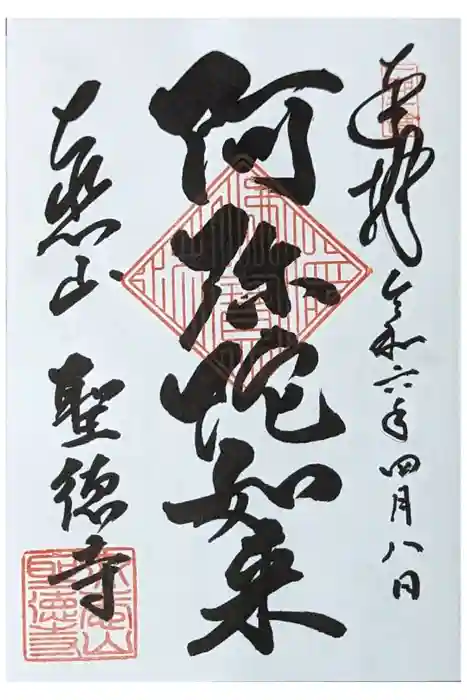 奉拝
令和六年四月八日
阿弥陀如来
聖徳寺
聖徳寺